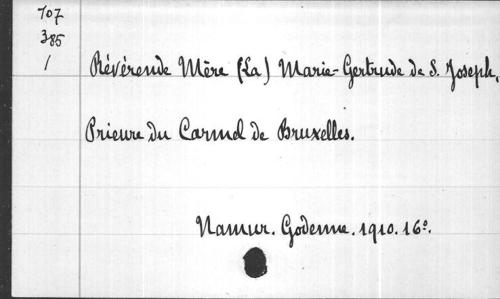 707
385
1
Révérende Mère (La) Marie-Gertrude de S. Joseph,
Prieure du Carmel de Bruxelles.
Namur. Godenne. 1910. 16°.